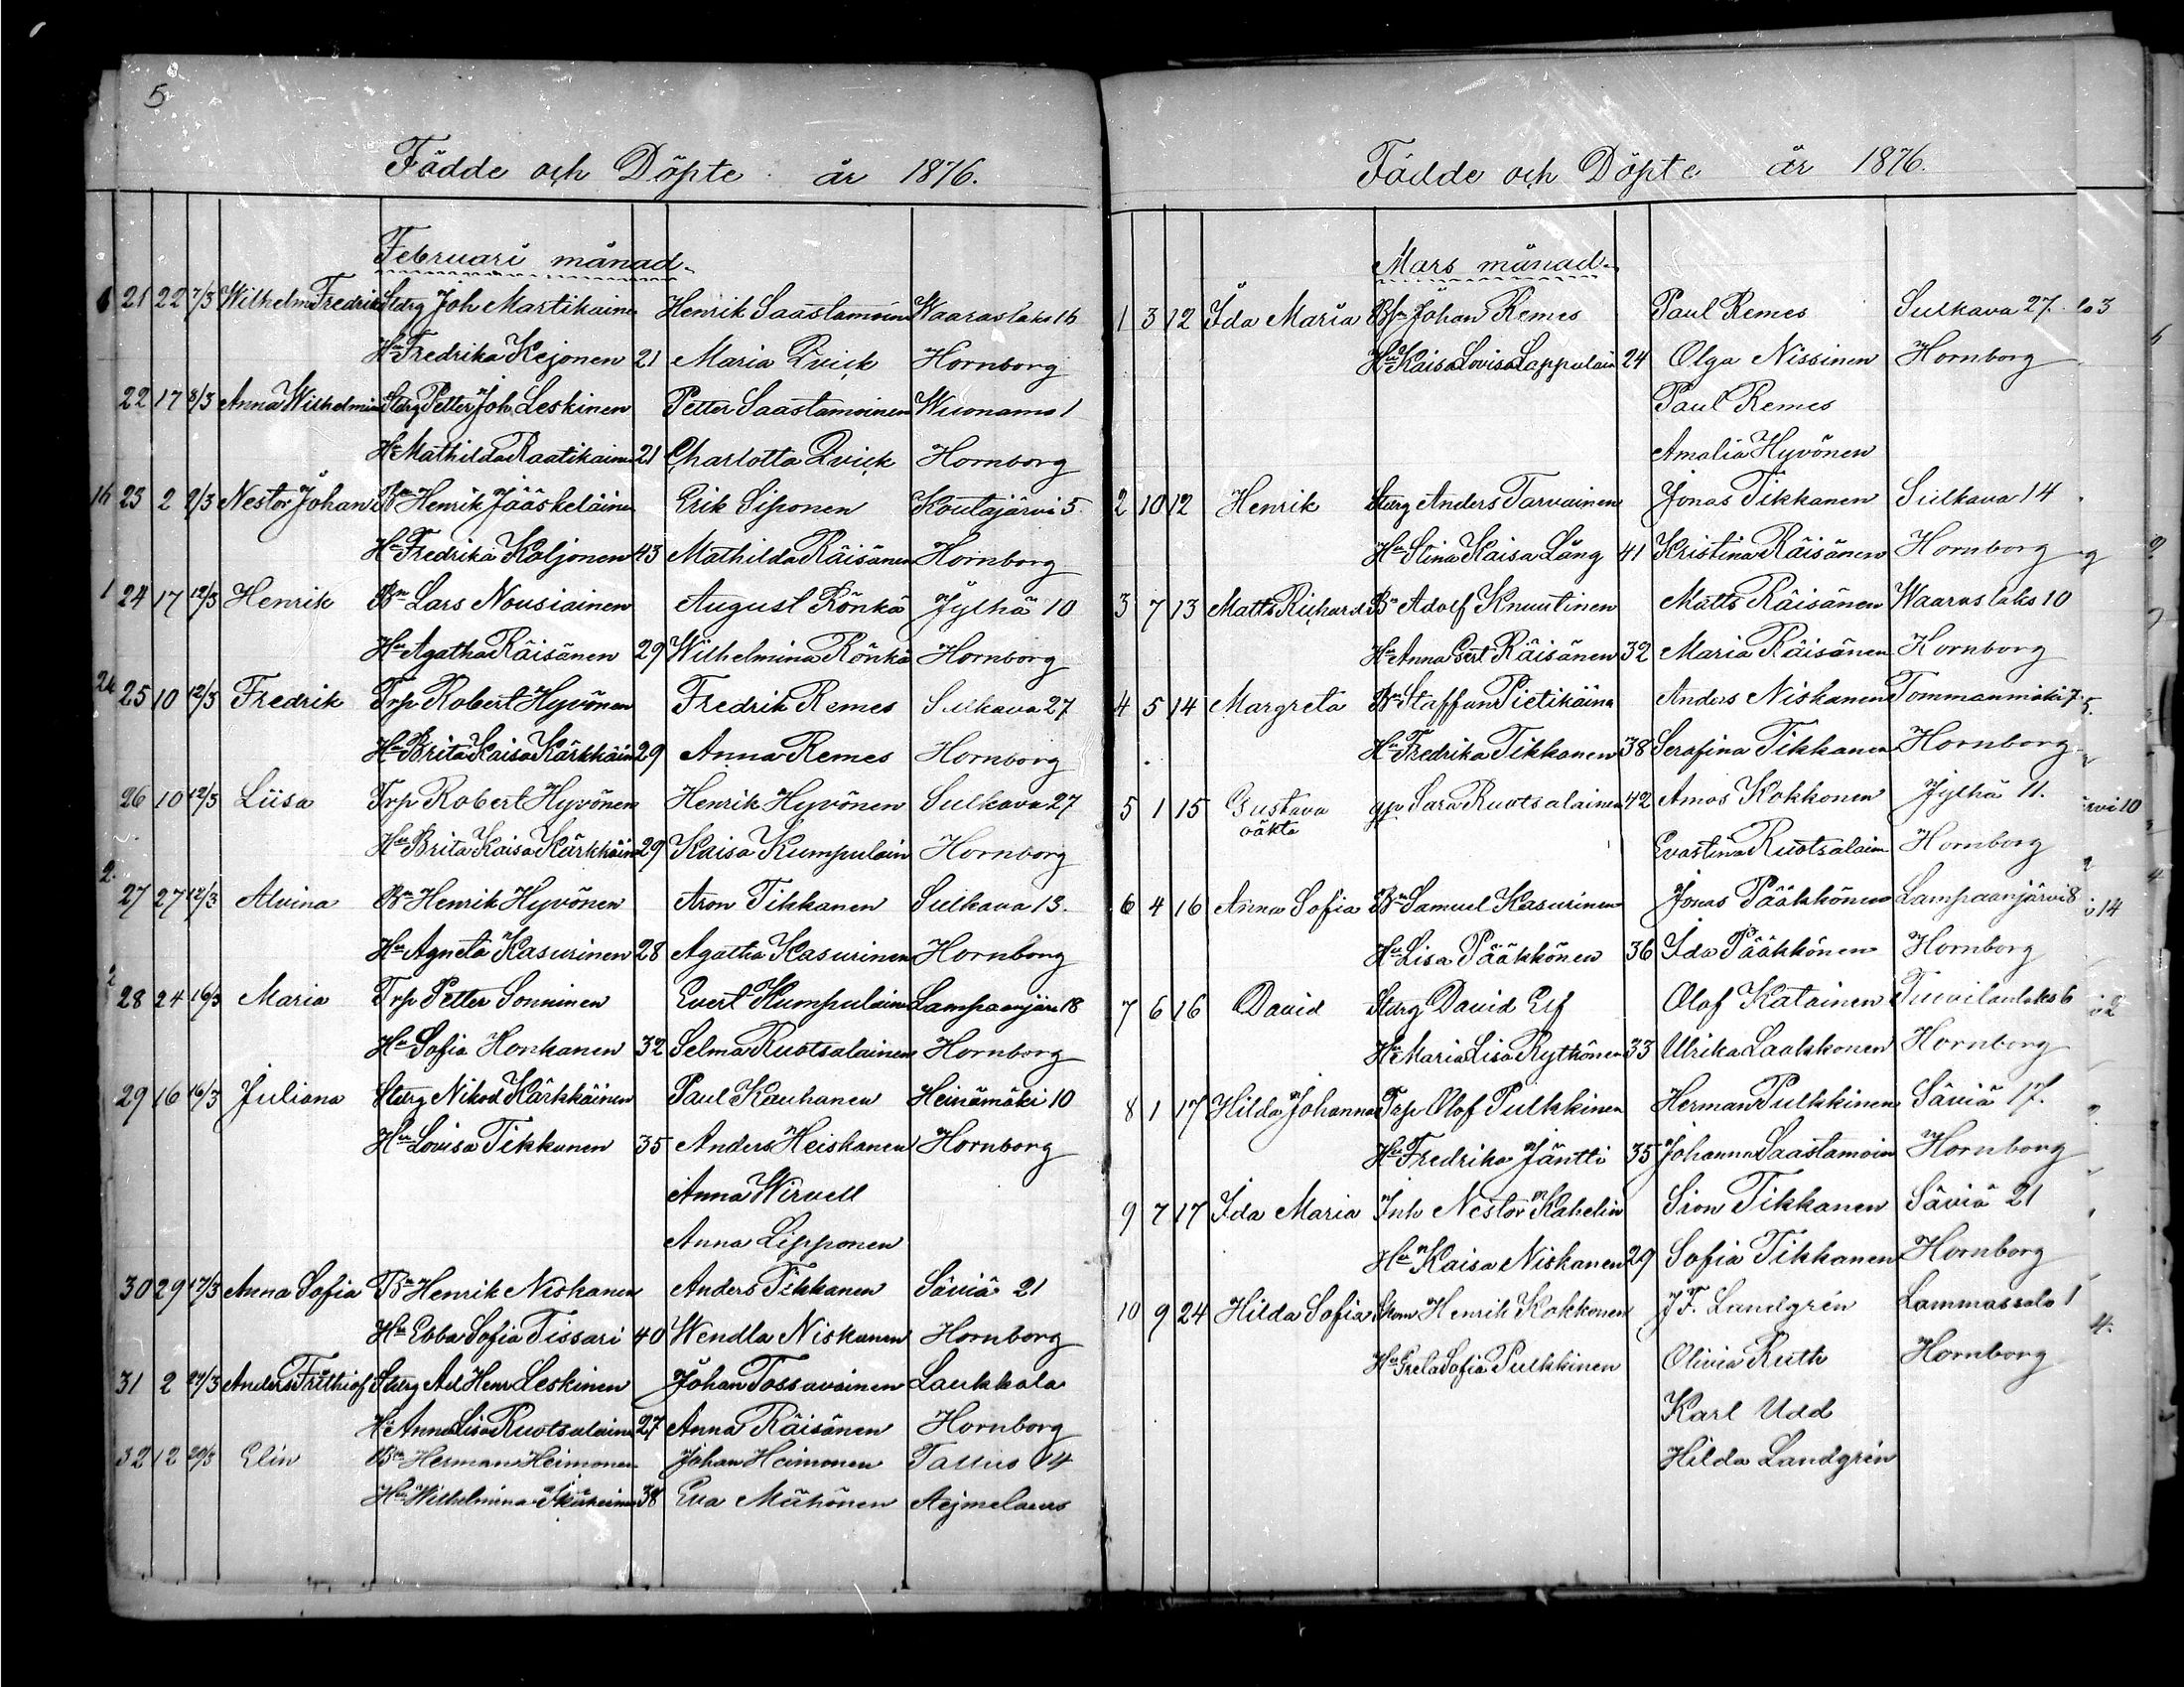 5
Födde och Döpte år 1876.
Februari månad.
21 22 7/3 Wilhelm Fredrik Starg Joh Martikainen Henrik Saastamoinen Waaraslaks 16
Hu Fredrika Kejonen 21 Maria Qvick Hornborg
22 17 8/3 Anna Wilhelmina Starg Petter Joh. Leskinen Petter Saastamoinen Wuonamo 1
Hu Mathilda Raatikainen 21 Charlotta Qvick Hornborg
23 2 9/3 Nestor Johan Bn Henrik Jääskeläinen Erik Siponen Koutajärvi 5.
Hu Fredrika Koljonen 43 Mathilda Räisänen Hornborg
24 17 12/3 Henrik Bn Lars Nousiainen August Rönkä Jylhä 10
Hu Agatha Räisänen 29 Wilhelmina Rönkä Hornborg
25 10 12/3 Fredrik Trp Robert Hyvönen Fredrik Remes Sulkava 27
Hu Brita Kaisa Kärkkäin 29 Anna Remes Hornborg
26 10 12/3 Liisa Trp Robert Hyvönen Henrik Hyvönen Sulkava 27
Hu Brita Kaisa Kärkkäin 29 Kaisa Kumpulain Hornborg
27 27 12/3 Alvina Bn Henrik Hyvönen Aron Tikkanen Sulkava 13.
Hu Agneta Kasurinen 28 Agatha Kasurinen Hornborg
28 24 16/3 Maria Trp Petter Sonninen Evert Kumpulainen Lampaanjärvi 18
Hu Sofia Honkanen 32 Selma Ruotsalainen Hornborg
29 16 16/3 Juliana Starg Nikod Kärkkäinen Paul Kauhanen Heinämäki 10
Hu Lovisa Tikkanen 35 Anders Heiskanen Hornborg
Anna Wirvell
Anna Lipponen
30 29 17/3 Anna Sofia Bn Henrik Niskanen Anders Tikkanen Säviä 21
Hu Ebba Sofia Tissari 40 Wendla Niskanen Hornborg
31 2 Anders Frithiof Starg Ad Henr Leskinen Johan Tossavainen Laukkala
Hu Anna Lisa Ruotsalainen 27 Anna Räisänen Hornborg
32 12 Elin Bn Herman Heimonen Johan Heimonen Tallus 14
Hu Wilhelmina 38 Eva Mähönen Aejmelaeus
Födde och Döpte år 1876.
Mars månad.
1 3 12 Ida Maria Bn Johan Remes Paul Remes Sulkava 27.
Hu Kaisa Lovisa Lappalain 24 Olga Nissinen Hornborg
Paul Remes
Amalia Hyvönen
2 10 12 Henrik Starg Anders Tarvainen Jonas Tikkanen Sulkava 14
Hu Stina Kaisa Lång 41 Kristina Räisänen Hornborg
3 7 13 Matts Richard Bn Adolf Knuutinen Matts Räisänen Waaraslaks 10
Hu Anna Gert Räisänen 32 Maria Räisänen Hornborg
4 5 14 Margreta Bn Staffan Pietikäine Anders Niskanen Tommanmäki 7.
Hu Fredrika Tikkanen 38 Serafina Tikkanen Hornborg
5 1 15 Gustava qp. Sara Ruotsalainen 42 Amos Kokkonen Jylhä 11.
oäkta Evastina Ruotsalain Hornborg
6 4 16 Anna Sofia Bn Samuel Kasurinen Jonas Pääkkönen Lampaanjärvi 8
Hu Lisa Pääkkönen 36 Ida Pääkkönen Hornborg
7 6 16 David Starg David Elf Olof Katainen Tuovilanlaks 6
Hu Maria Lisa Rytkönen 33 Ulrika Laakkonen Hornborg
8 1 17 Hilda Johanna Trp Olof Pulkkinen Herman Pulkkinen Säviä 17.
Hu Fredrika Jäntti 35 Johanna Saastamoin Hornborg
9 7 17 Ida Maria Inh Nestor Kahelin Sion Tikkanen Säviä 21
Hu Kaisa Niskanen 29 Sofia Tikkanen Hornborg
10 9 24 Hilda Sofia Skom Henrik Kokkonen J F. Landgrén Lammassalo 1
Hu Greta Sofia Pulkkinen Olivia Ruth Hornborg
Karl Udd
Hilda Landgrén